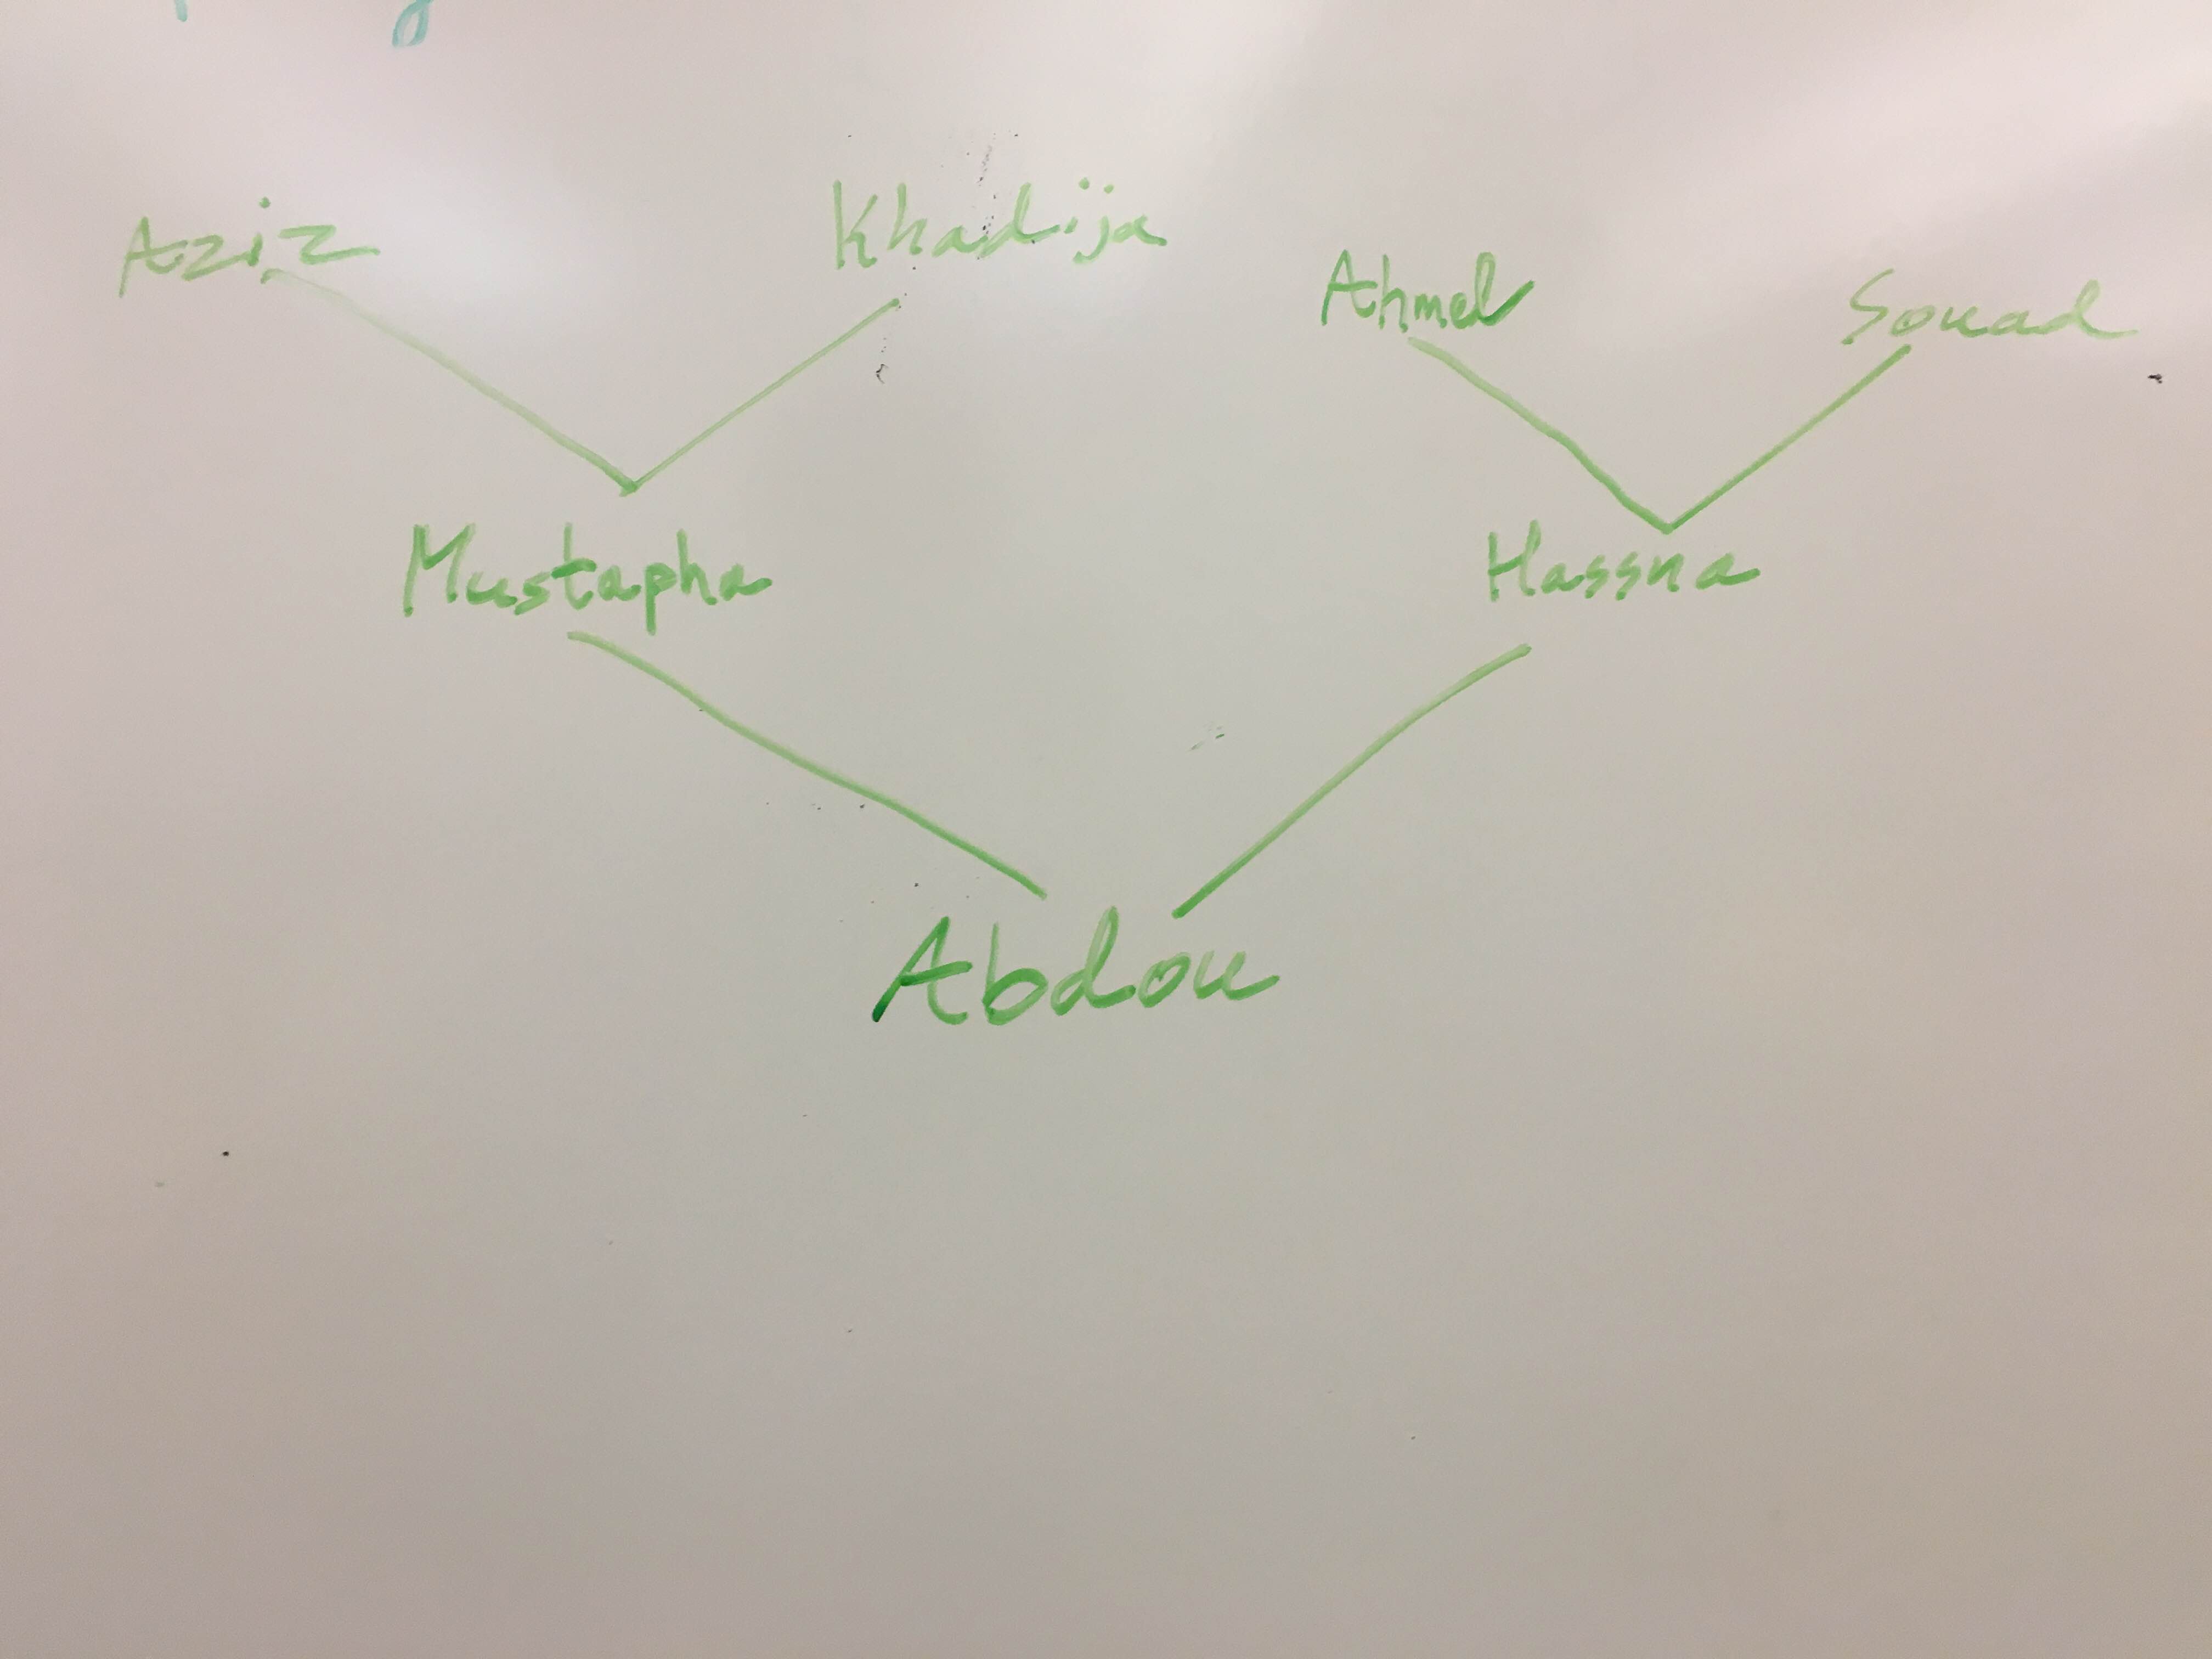 Aziz Khadija Ahmed Souad
Mustapha Hassna
Abdou